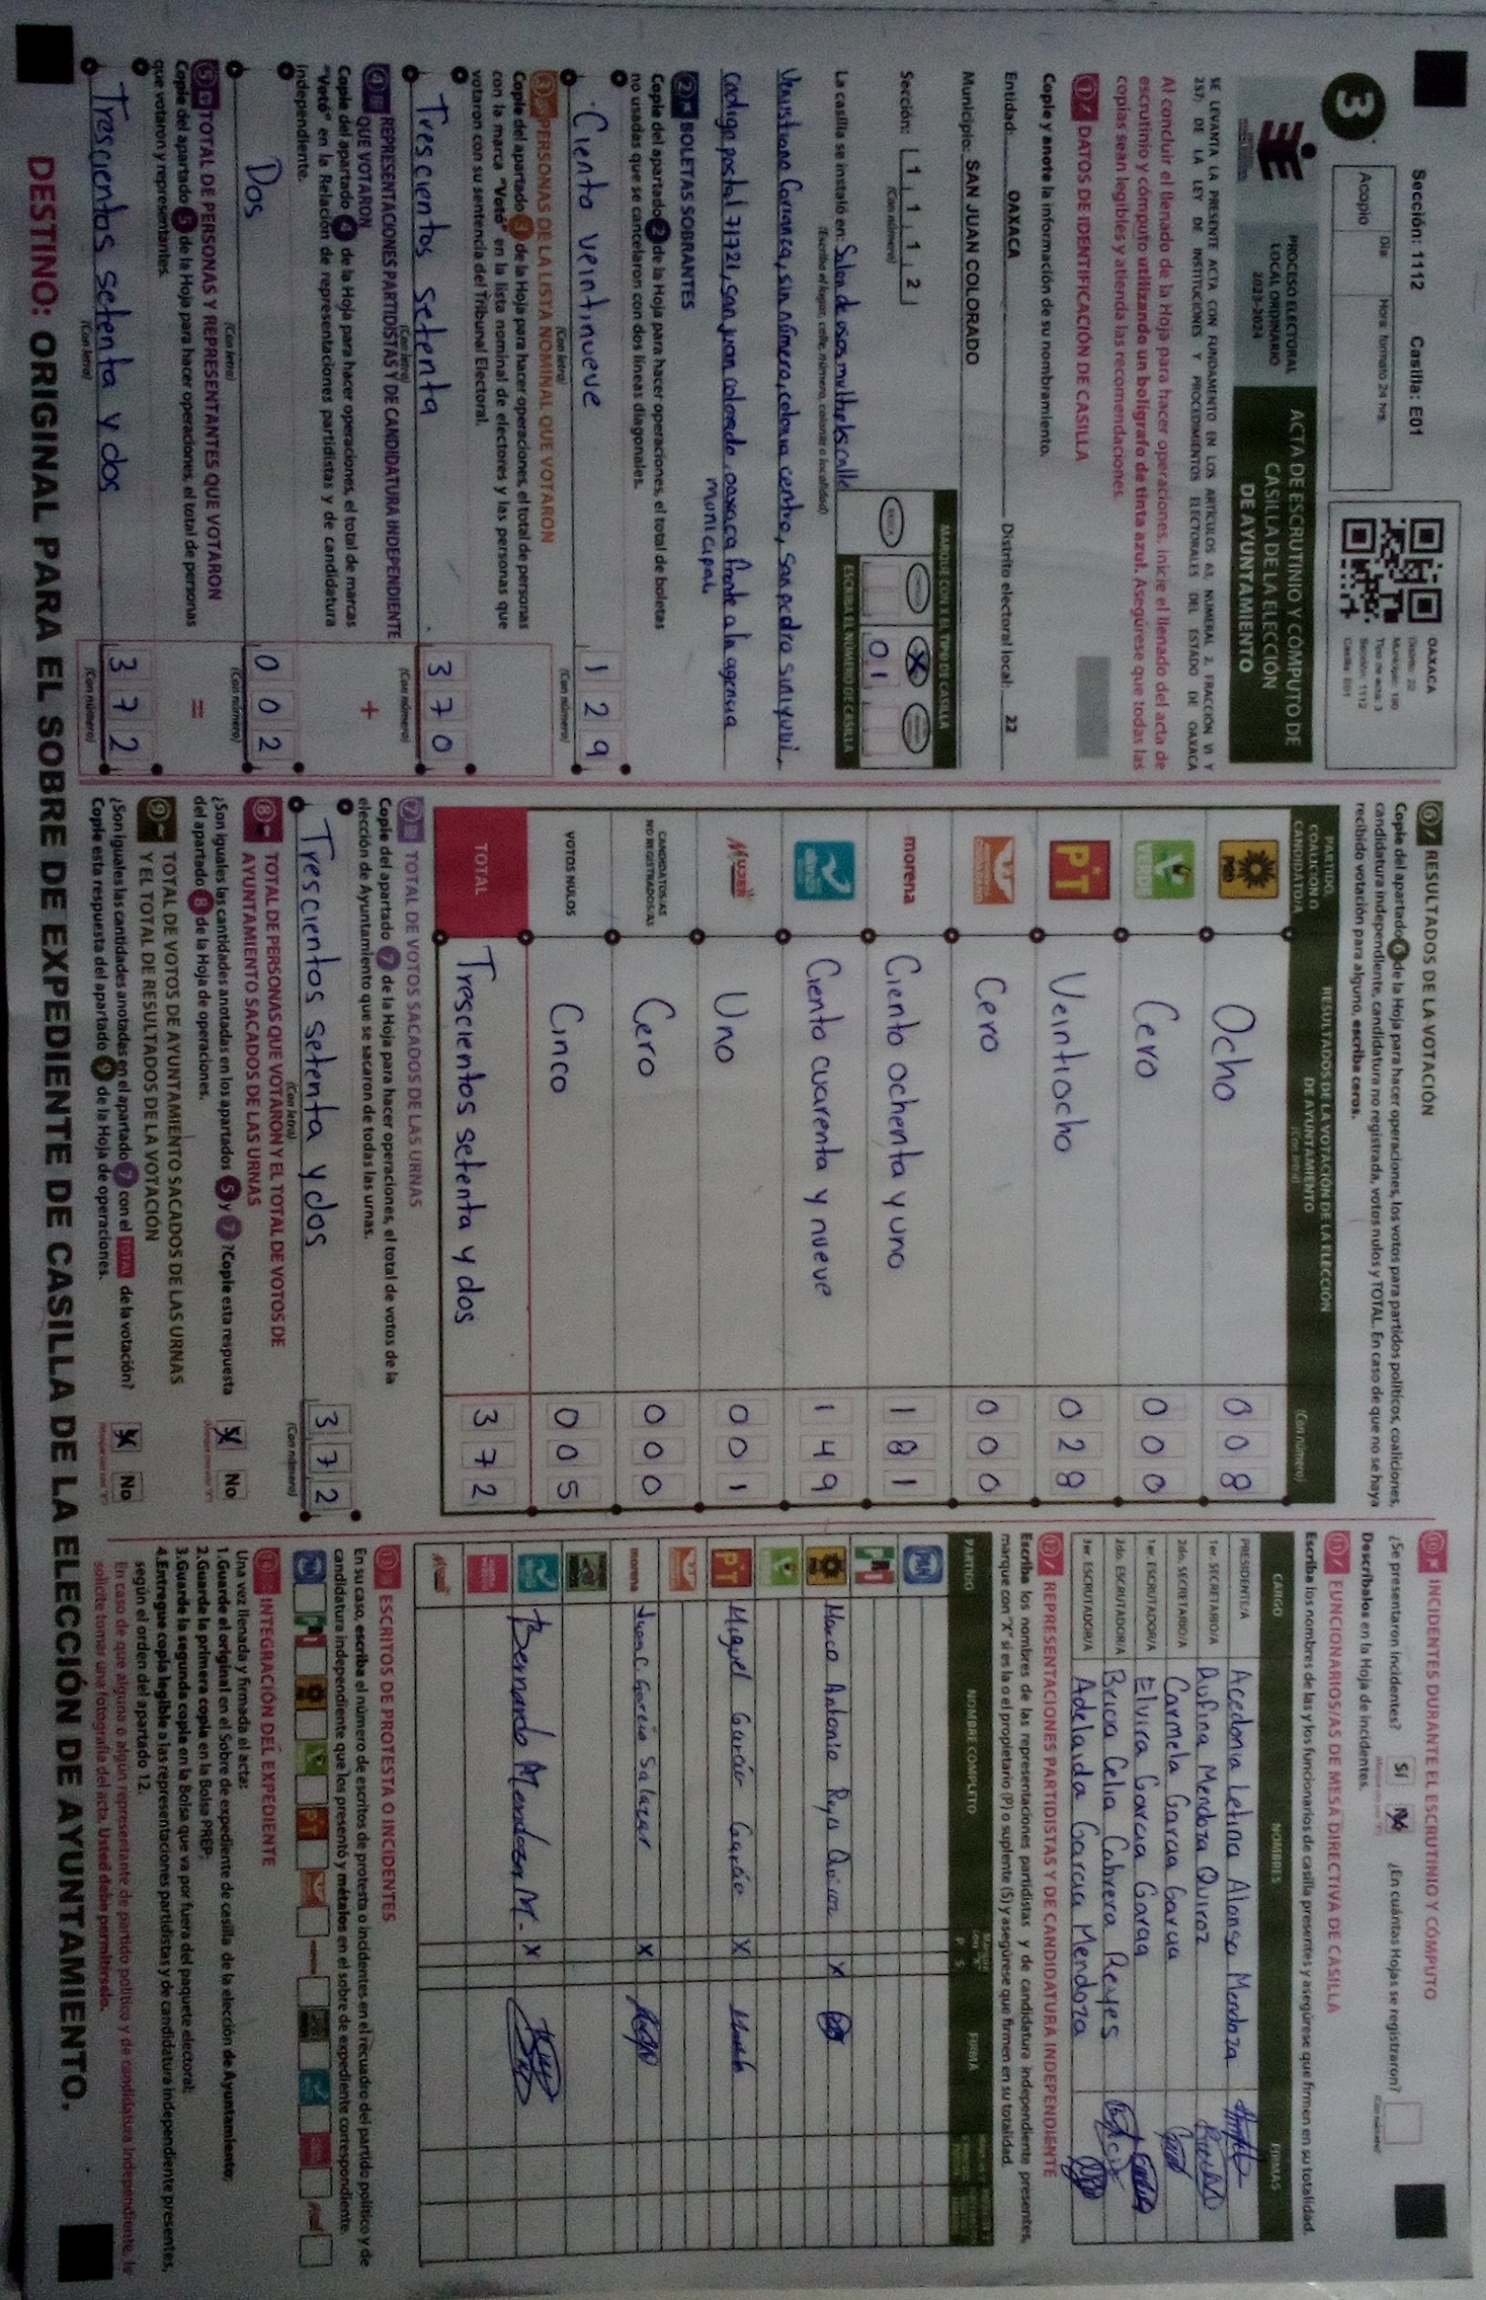 Sección: 1112 Casilla: E01
3
Día: Hora: formato 24 hrs.
Acopio
OAXACA
Distrito: 22
Municipio: 190
Tipo de acta: 3
Sección: 1112
Casilla: E01
PROCESO ELECTORAL
LOCAL ORDINARIO
2023-2024
ACTA DE ESCRUTINIO Y CÓMPUTO DE
CASILLA DE LA ELECCIÓN
DE AYUNTAMIENTO
SE LEVANTA LA PRESENTE ACTA CON FUNDAMENTO EN LOS ARTÍCULOS 63, NUMERAL 2, FRACCIÓN VI Y
257; DE LA LEY DE INSTITUCIONES Y PROCEDIMIENTOS ELECTORALES DEL ESTADO DE OAXACA
Al concluir el llenado de la Hoja para hacer operaciones, inicie el llenado del acta de
escrutinio y cómputo utilizando un bolígrafo de tinta azul. Asegúrese que todas las
copias sean legibles y atienda las recomendaciones.
1 DATOS DE IDENTIFICACIÓN DE CASILLA
Copie y anote la información de su nombramiento.
Entidad: OAXACA Distrito electoral local: 22
Municipio: SAN JUAN COLORADO
Sección: 1 1 1 2
(Con número)
MARQUE CON X EL TIPO DE CASILLA
X
0 1
ESCRIBA EL NÚMERO DE CASILLA
La casilla se instaló en: Salon de usos multheks calle
(Escriba el lugar, calle, número, colonia o localidad)
Venustiano Carranza, sin número, colonia centro, San pedro siniyuvi,
codigo postal 71721, san juan colorado, oaxaca frente a la agencia
municipal.
2 BOLETAS SOBRANTES
Copie del apartado 2 de la Hoja para hacer operaciones, el total de boletas
no usadas que se cancelaron con dos líneas diagonales.
Ciento veintinueve 1 2 9
(Con letra) (Con número)
3 PERSONAS DE LA LISTA NOMINAL QUE VOTARON
Copie del apartado 3 de la Hoja para hacer operaciones, el total de personas
con la marca "Votó" en la lista nominal de electores y las personas que
votaron con su sentencia del Tribunal Electoral.
Trescientos setenta 3 7 0
(Con letra) (Con número)
4 REPRESENTACIONES PARTIDISTAS Y DE CANDIDATURA INDEPENDIENTE
QUE VOTARON +
Copie del apartado 4 de la Hoja para hacer operaciones, el total de marcas
"Votó" en la Relación de representaciones partidistas y de candidatura
independiente.
Dos 0 0 2
(Con letra) (Con número)
5 TOTAL DE PERSONAS Y REPRESENTANTES QUE VOTARON =
Copie del apartado 5 de la Hoja para hacer operaciones, el total de personas
que votaron y representantes.
Trescientos setenta y dos 3 7 2
(Con letra) (Con número)
6 RESULTADOS DE LA VOTACIÓN
Copie del apartado 6 de la Hoja para hacer operaciones, los votos para partidos políticos, coaliciones,
candidatura independiente, candidatura no registrada, votos nulos y TOTAL. En caso de que no se haya
recibido votación para alguno, escriba ceros.
PARTIDO, COALICIÓN O CANDIDATO/A
RESULTADOS DE LA VOTACIÓN DE LA ELECCIÓN
DE AYUNTAMIENTO
(Con letra) (Con número)
PRD Ocho 0 0 8
VERDE Cero 0 0 0
PT Veintiocho 0 2 8
Cero 0 0 0
morena Ciento ochenta y uno 1 8 1
Ciento cuarenta y nueve 1 4 9
MUJER Uno 0 0 1
CANDIDATOS/AS NO REGISTRADOS/AS Cero 0 0 0
VOTOS NULOS Cinco 0 0 5
TOTAL Trescientos setenta y dos 3 7 2
7 TOTAL DE VOTOS SACADOS DE LAS URNAS
Copie del apartado 7 de la Hoja para hacer operaciones, el total de votos de la
elección de Ayuntamiento que se sacaron de todas las urnas.
Trescientos setenta y dos 3 7 2
(Con letra) (Con número)
8 TOTAL DE PERSONAS QUE VOTARON Y EL TOTAL DE VOTOS DE
AYUNTAMIENTO SACADOS DE LAS URNAS
¿Son iguales las cantidades anotadas en los apartados 5 y 7 ? Copie esta respuesta
del apartado 8 de la Hoja de operaciones.
X No
9 TOTAL DE VOTOS DE AYUNTAMIENTO SACADOS DE LAS URNAS
Y EL TOTAL DE RESULTADOS DE LA VOTACIÓN
¿Son iguales las cantidades anotadas en el apartado 7 con el TOTAL de la votación?
Copie esta respuesta del apartado 9 de la Hoja de operaciones.
X No
10 INCIDENTES DURANTE EL ESCRUTINIO Y CÓMPUTO
¿Se presentaron incidentes? Sí No ¿En cuántas Hojas se registraron?
Descríbalos en la Hoja de incidentes.
11 FUNCIONARIOS/AS DE MESA DIRECTIVA DE CASILLA
Escriba los nombres de las y los funcionarios de casilla presentes y asegúrese que firmen en su totalidad.
CARGO NOMBRES FIRMAS
PRESIDENTE/A Acedonia Letina Alonso Mendoza
1er. SECRETARIO/A Rufina Mendoza Quiroz
2do. SECRETARIO/A Carmela Garcia Garcia
1er. ESCRUTADOR/A Elvira Garcia Garcia
2do. ESCRUTADOR/A Bricia Celia Cabrera Reyes
3er. ESCRUTADOR/A Adelaida Garcia Mendoza
12 REPRESENTACIONES PARTIDISTAS Y DE CANDIDATURA INDEPENDIENTE
Escriba los nombres de las representaciones partidistas y de candidatura independiente presentes,
marque con "X" si es la o el propietario (P) o suplente (S) y asegúrese que firmen en su totalidad.
PARTIDO NOMBRE COMPLETO P S FIRMA
PAN
PRI
PRD Marco Antonio Reyes Quiroz X
VERDE
PT Miguel García García X
morena Juan C. García Salazar X
Bernardo Mendoza M. X
13 ESCRITOS DE PROTESTA O INCIDENTES
En su caso, escriba el número de escritos de protesta o incidentes en el recuadro del partido político y de
candidatura independiente que los presentó y métalos en el sobre de expediente correspondiente.
14 INTEGRACIÓN DEL EXPEDIENTE
Una vez llenada y firmada el acta:
1. Guarde el original en el Sobre de expediente de casilla de la elección de Ayuntamiento;
2. Guarde la primera copia en la Bolsa PREP;
3. Guarde la segunda copia en la Bolsa que va por fuera del paquete electoral;
4. Entregue copia legible a las representaciones partidistas y de candidatura independiente presentes,
según el orden del apartado 12.
En caso de que alguna o algún representante de partido político y de candidatura independiente, le
solicite tomar una fotografía del acta, Usted debe permitírselo.
DESTINO: ORIGINAL PARA EL SOBRE DE EXPEDIENTE DE CASILLA DE LA ELECCIÓN DE AYUNTAMIENTO.